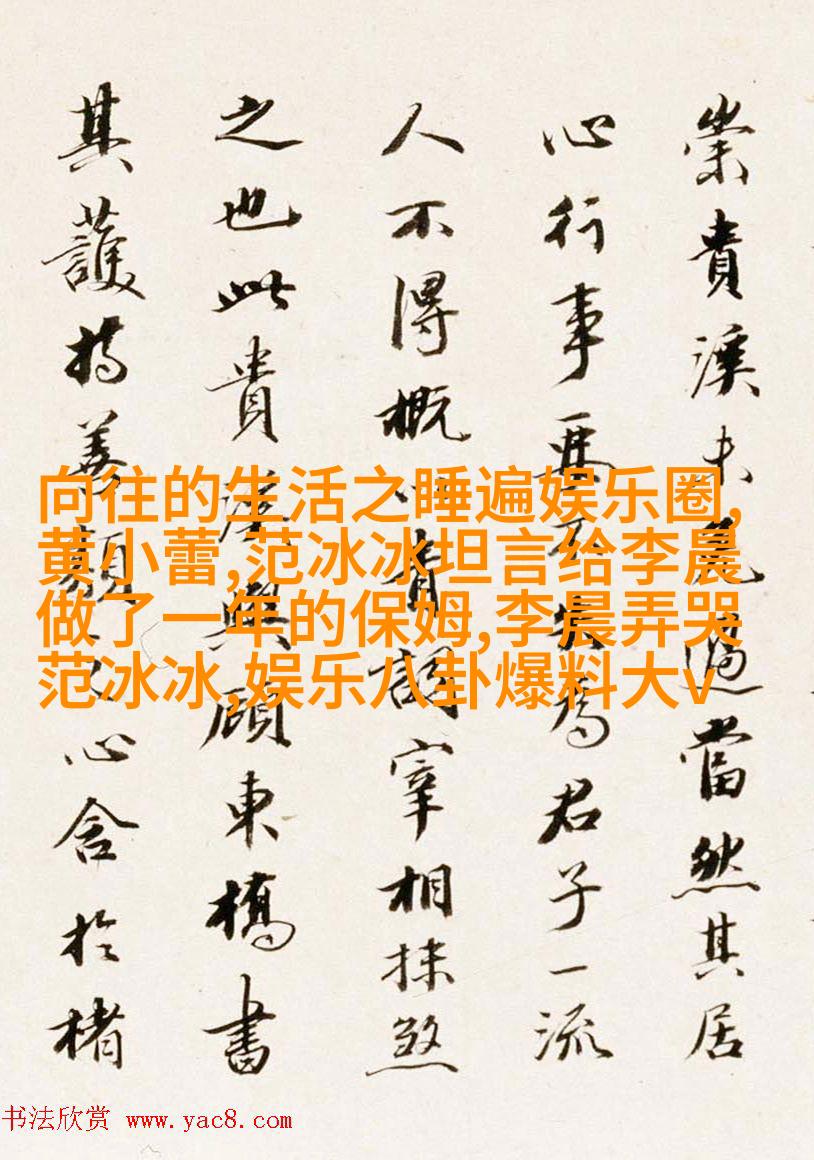 崇貴溪未免過當然其居
心行事要不失為君子一流
人不得概以青詞宰相抹煞
之也此貴溪與顧東橋書
其護持善類之心含於楮
向往的生活之睡遍娱乐圈,
黄小蕾,范冰冰坦言给李晨
做了一年的保姆,李晨弄哭
范冰冰,娱乐八卦爆料大v
书法欣赏 www.yac8.com